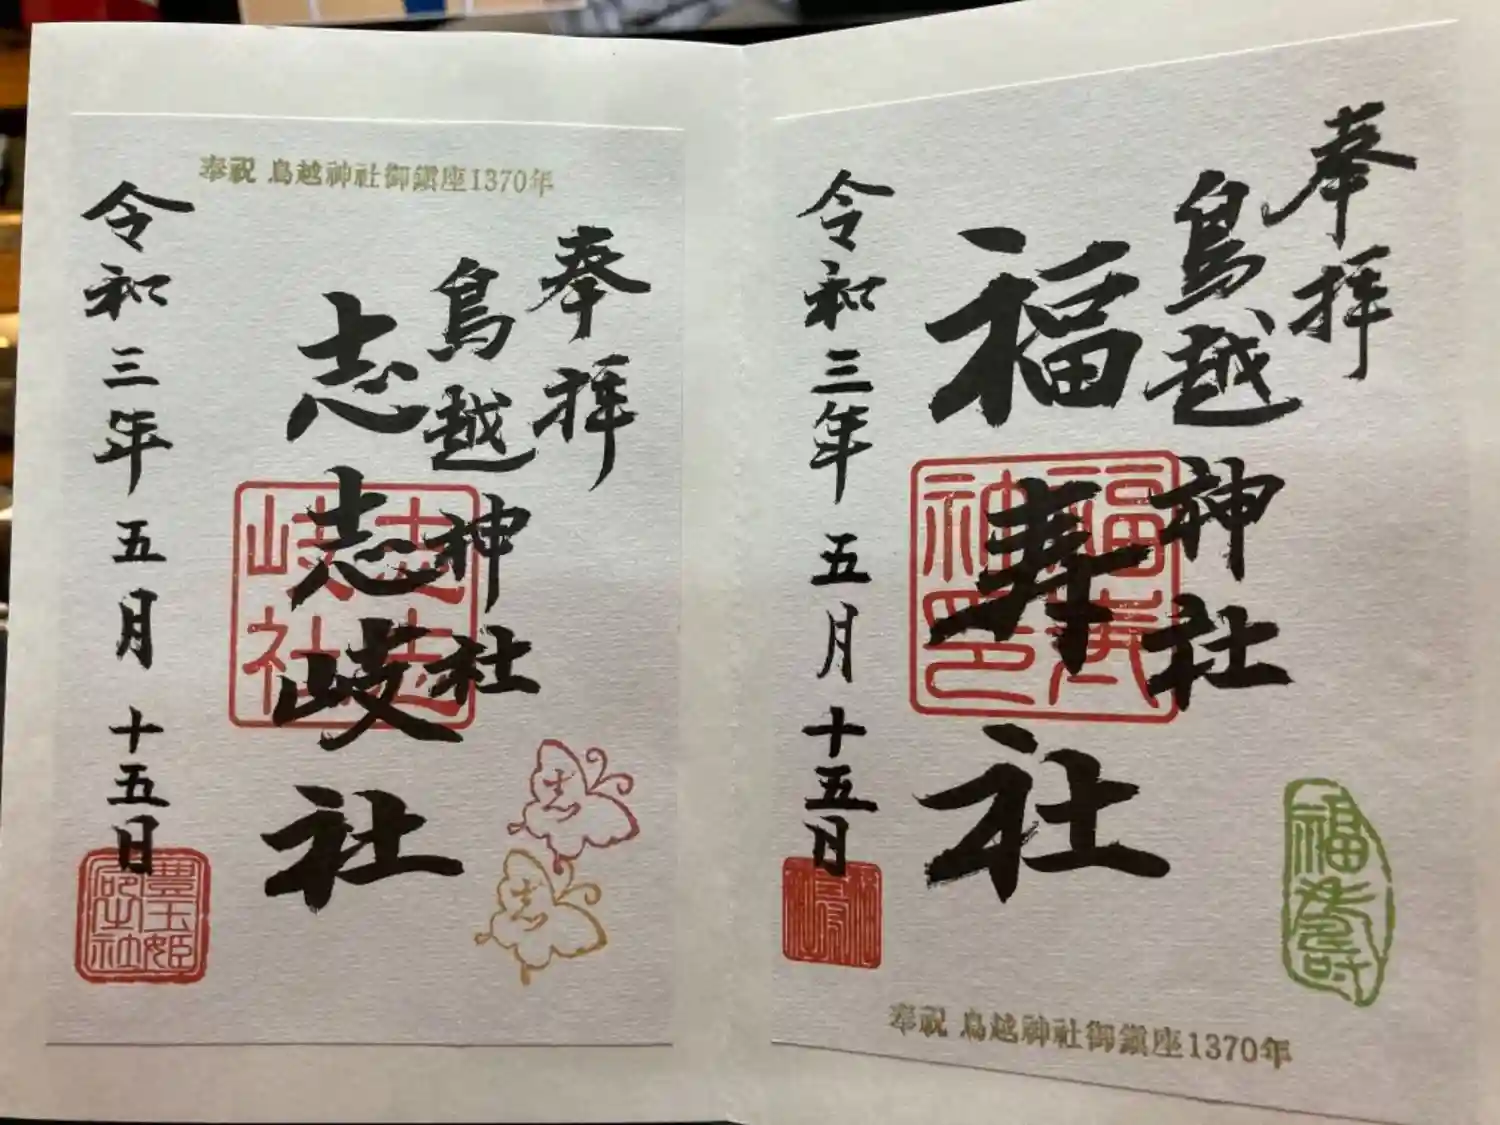 奉拝
鳥越神社
福寿社
令和三年五月十五日
福寿
奉祝 鳥越神社御鎮座1370年
奉祝 鳥越神社御鎮座1370年
奉拝
鳥越神社
志志岐社
令和三年五月十五日
志志
岐社
豊玉姫
志
志